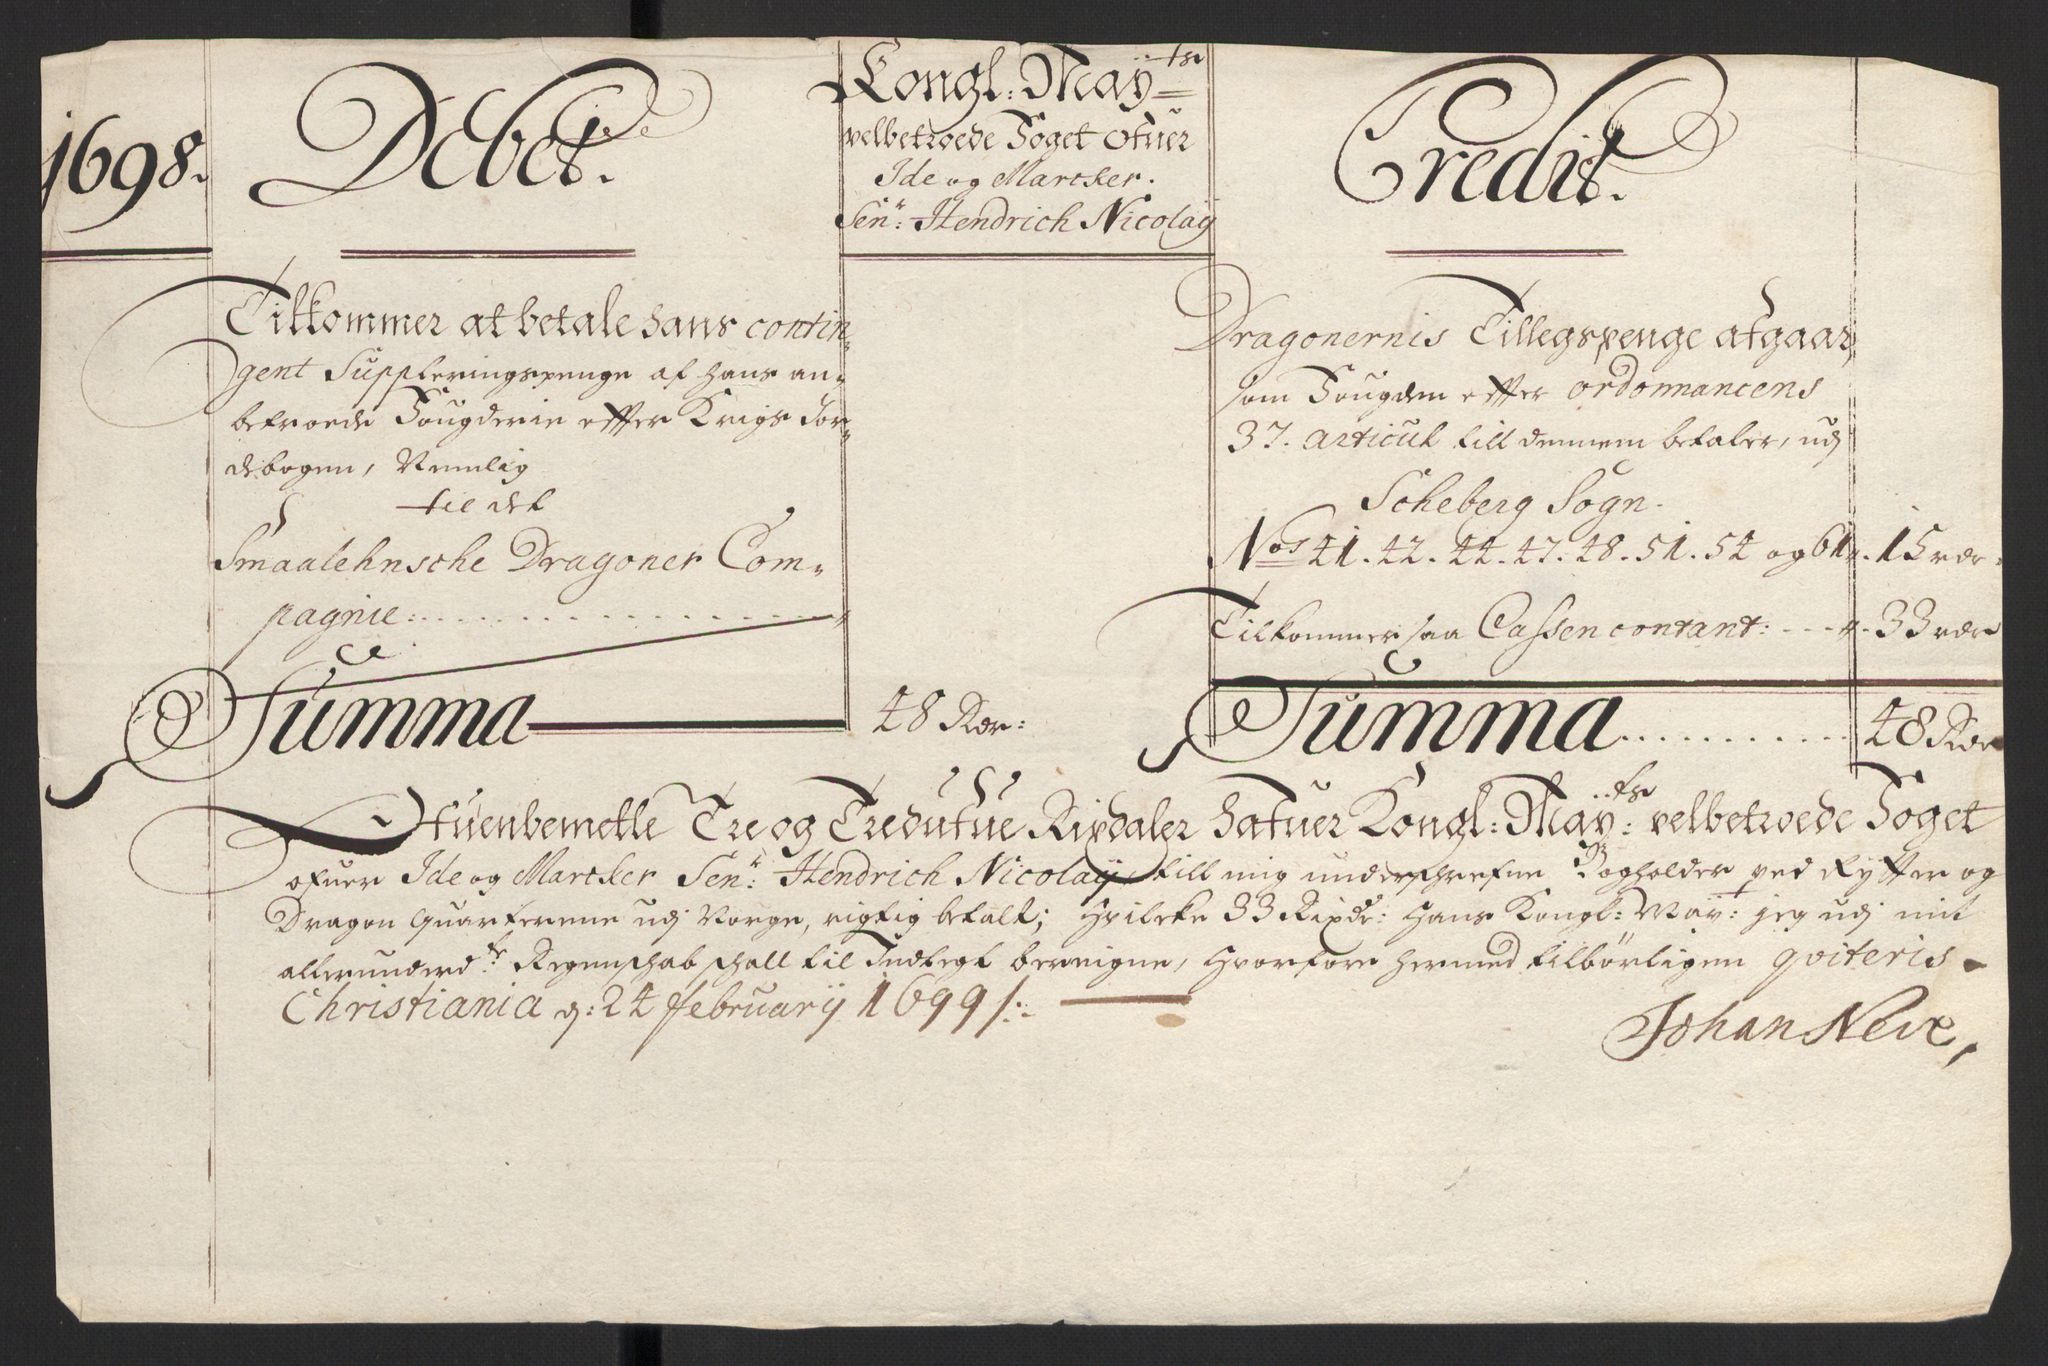 1698.
Debet.
Kongl: Maÿts
velbetroede Foget ofuer
Ide og Marcker.
Senr: Hendrich Nicolaÿ
Credit.
Tilkommer at betale hans contin-
gent Suppleringspenge af hans an-
betroede Fougderie effter Krigs Jor-
debogen, Nemlig
til det
Smaalehnsche Dragoner Com-
pagnie:
Summa 48 Rdr:
Dragonernis Tillegspenge afgaar,
som Fougden effter ordonnancens
37. articul till dennem betaler, udj
Scheberg Sogn.
Nos 41. 42. 44. 47. 48. 51. 54 og 61. 15 rdr.
Tilkommer saa Cassen contant: 33 rdr
Summa 48 Rdr
Ofuenbemelte Tre og Tredufue Rixdaler hafuer Kongl: Maÿts: velbetroede Foget
ofuer Ide og Marcker Senr: Hendrich Nicolaÿ, till mig underschrefne Bogholder ved Rytter og
Dragon Quarterene udj Norge, rigtig betalt; Hvilcke 33 Rixdr: Hans Kongl: Maÿt: jeg udj mit
allerunderdste Regenschab schall til Indtegt beregne, Hvorfore hermed tilbörligen qviteris
Christiania d: 24 februarÿ 1699
Johan Neve,